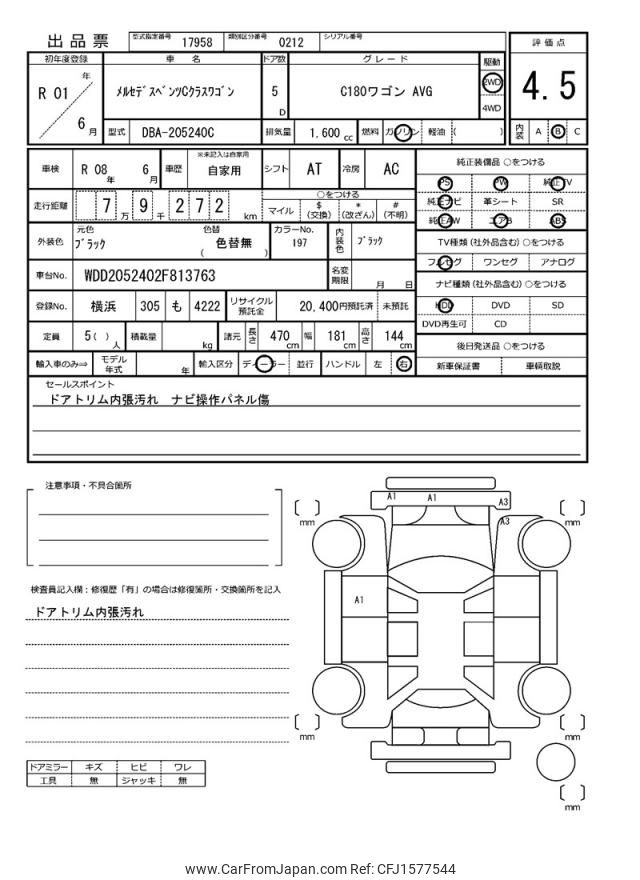 出品票 型式指定番号 17958 類別区分番号 0212 シリアル番号
初年度登録 車名 ドア数 グレード 駆動 評価点
R 01 年 6 月 ﾒﾙｾﾃﾞｽﾍﾞﾝﾂCｸﾗｽﾜｺﾞﾝ 5 D C180ワゴン AVG 2WD 4WD 4.5
型式 DBA-205240C 排気量 1,600 cc 燃料 ガソリン 軽油 ( ) 内装 A B C
車検 R 08 年 6 月 車歴 ※未記入は自家用 自家用 シフト AT 冷房 AC 純正装備品 ○をつける
PS PW 純正TV
走行距離 7 万 9 千 2 7 2 km ○をつける
マイル $ (交換) * (改ざん) # (不明)
純正ナビ 革シート SR
純正AW エアB ABS
外装色 元色 ﾌﾞﾗｯｸ 色替 色替無 ( ) カラーNo. 197 内装色 ﾌﾞﾗｯｸ
TV種類 (社外品含む) ○をつける
フルセグ ワンセグ アナログ
車台No. WDD2052402F813763 名変期限 月 日
ナビ種類 (社外品含む) ○をつける
登録No. 横浜 305 も 4222 リサイクル預託金 20,400円預託済 未預託
HDD DVD SD
DVD再生可 CD
定員 5 ( ) 人 積載量 kg 諸元 長さ 470 cm 幅 181 cm 高さ 144 cm
後日発送品 ○をつける
輸入車のみ⇒ モデル年式 年 輸入区分 ディーラー 並行 ハンドル 左 右 新車保証書 車輌取説
セールスポイント
ドアトリム内張汚れ ナビ操作パネル傷
注意事項・不具合箇所
A1 A1 A3
A3
mm mm
検査員記入欄：修復歴「有」の場合は修復箇所・交換箇所を記入
A1
ドアトリム内張汚れ
mm mm
ドアミラー キズ ヒビ ワレ
工具 無 ジャッキ 無
mm
www.CarFromJapan.com Ref: CFJ1577544